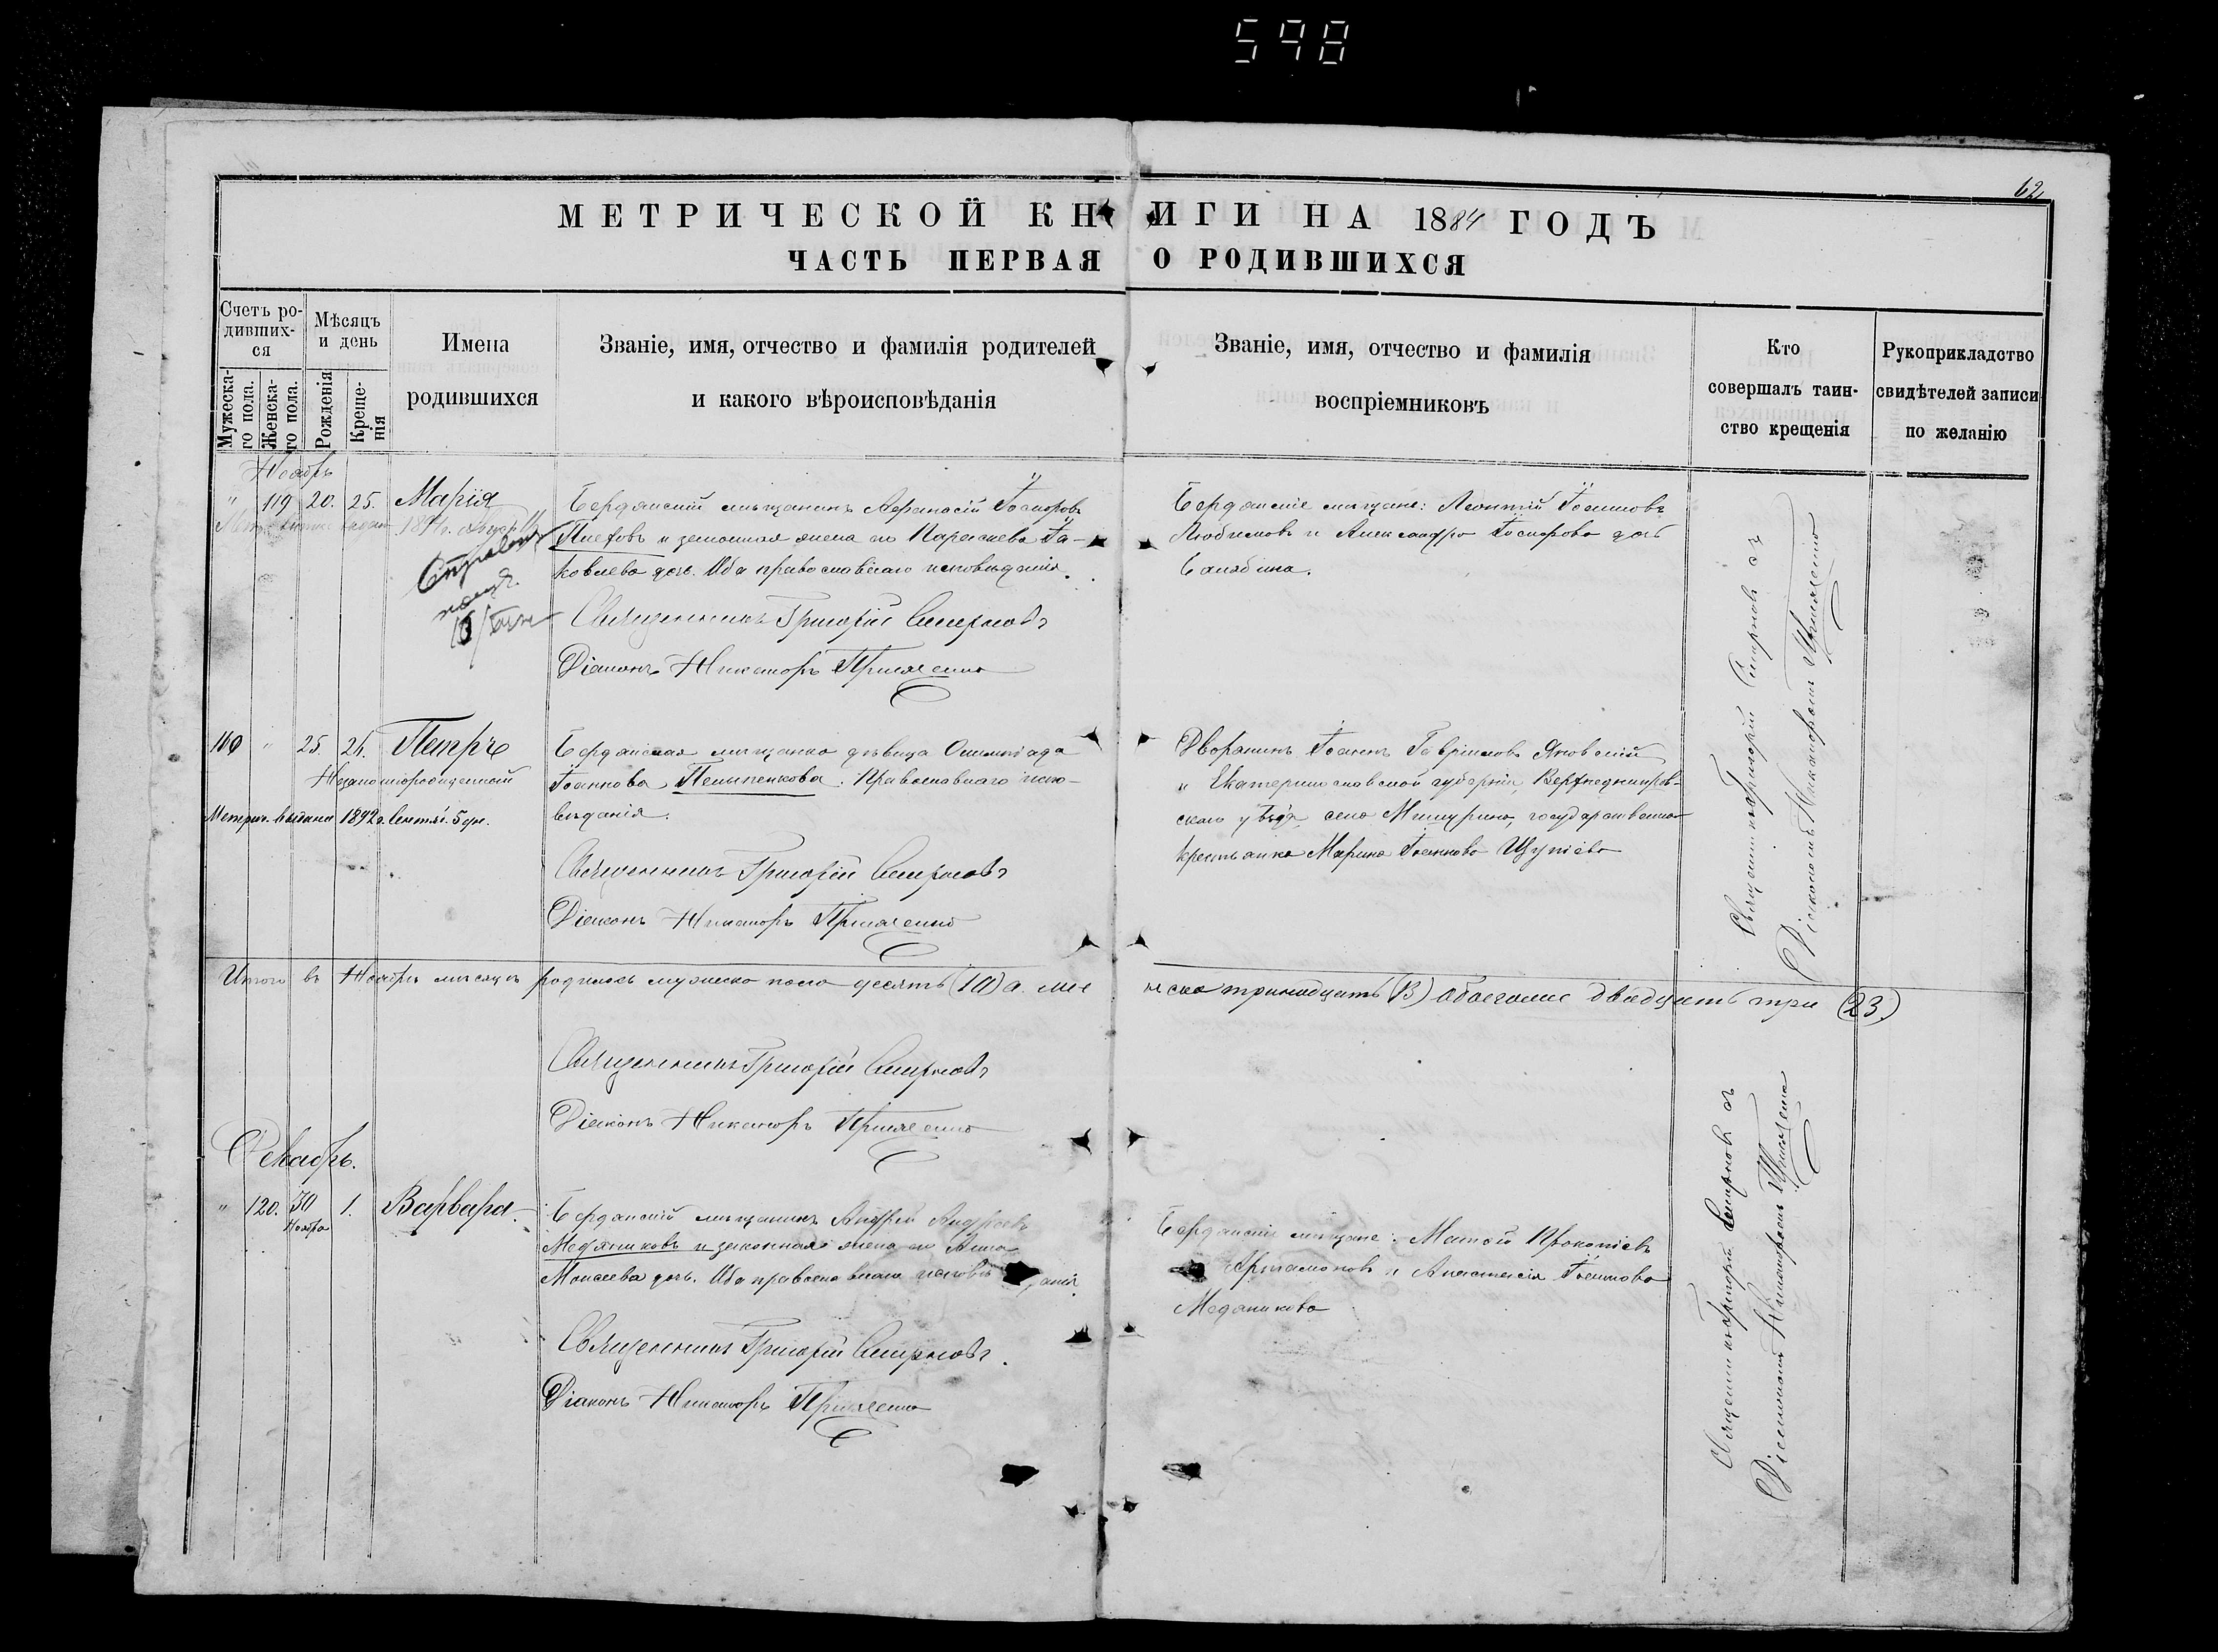 598
62
МЕТРИЧЕСКОЙ КНИГИ НА 1884 ГОДЪ
ЧАСТЬ ПЕРВАЯ О РОДИВШИХСЯ
Счетъ ро-
дивших-
ся
Мужеска-
го пола.
Женска-
го пола.
Мѣсяцъ
и день
Рожденія
Креще-
нія
Имена
родившихся
Званіе, имя, отчество и фамилія родителей
и какого вѣроисповѣданія
Званіе, имя, отчество и фамилія
воспріемниковъ
Кто
совершалъ таин-
ство крещенія
Рукоприкладство
свидѣтелей записи
по желанію
Ноябрь
" 119 20. 25. Марія
Бердянскій мѣщанинъ Аѳанасій
и законная жена его Параскева
ковлева дочь. Оба православнаго исповѣданія.
Священникъ Григорій Смирновъ
Діаконъ Никаноръ
Бердянскіе мѣщане: Леонтій Іоанновъ
Любимовъ и Александра дочь
Священникъ Григорій Смирновъ съ
Діакономъ Никаноромъ
110 " 25. 26. Петръ
Незаконнорожденный
Метрич. выдана 1892 г. Сентяб. 5 дн.
Бердянская мѣщанка дѣвица Олимпіада
Іоаннова Пельпенкова. Православнаго испо-
вѣданія.
Священникъ Григорій Смирновъ
Діаконъ Никаноръ
Дворянинъ Іоаннъ Гавріиловъ Яновскій
" Екатеринославской губерніи, Верхнеднѣпров-
скаго уѣзда, село Мишурино, государственная
крестьянка Марина Іоаннова
Итого въ Ноябрѣ мѣсяцѣ родилось мужеска пола десять (10) а же
неска тринадцать (13) обоего двадцать три (23.)
Священникъ Григорій Смирновъ
Діаконъ Никаноръ
Декабрь.
" 120. 30 1. Варвара.
Ноября
Бердянскій мѣщанинъ Андрей Андреевъ
Медяниковъ и законная жена его Анна
Моисеева дочь. Оба православнаго исповѣданія.
Священникъ Григорій Смирновъ.
Діаконъ Никаноръ
Бердянскіе мѣщане: Матѳій Прокопіевъ
Артамоновъ и Анастасія Іоаннова
Медяникова
Священникъ Григорій Смирновъ съ
Діакономъ Никаноромъ